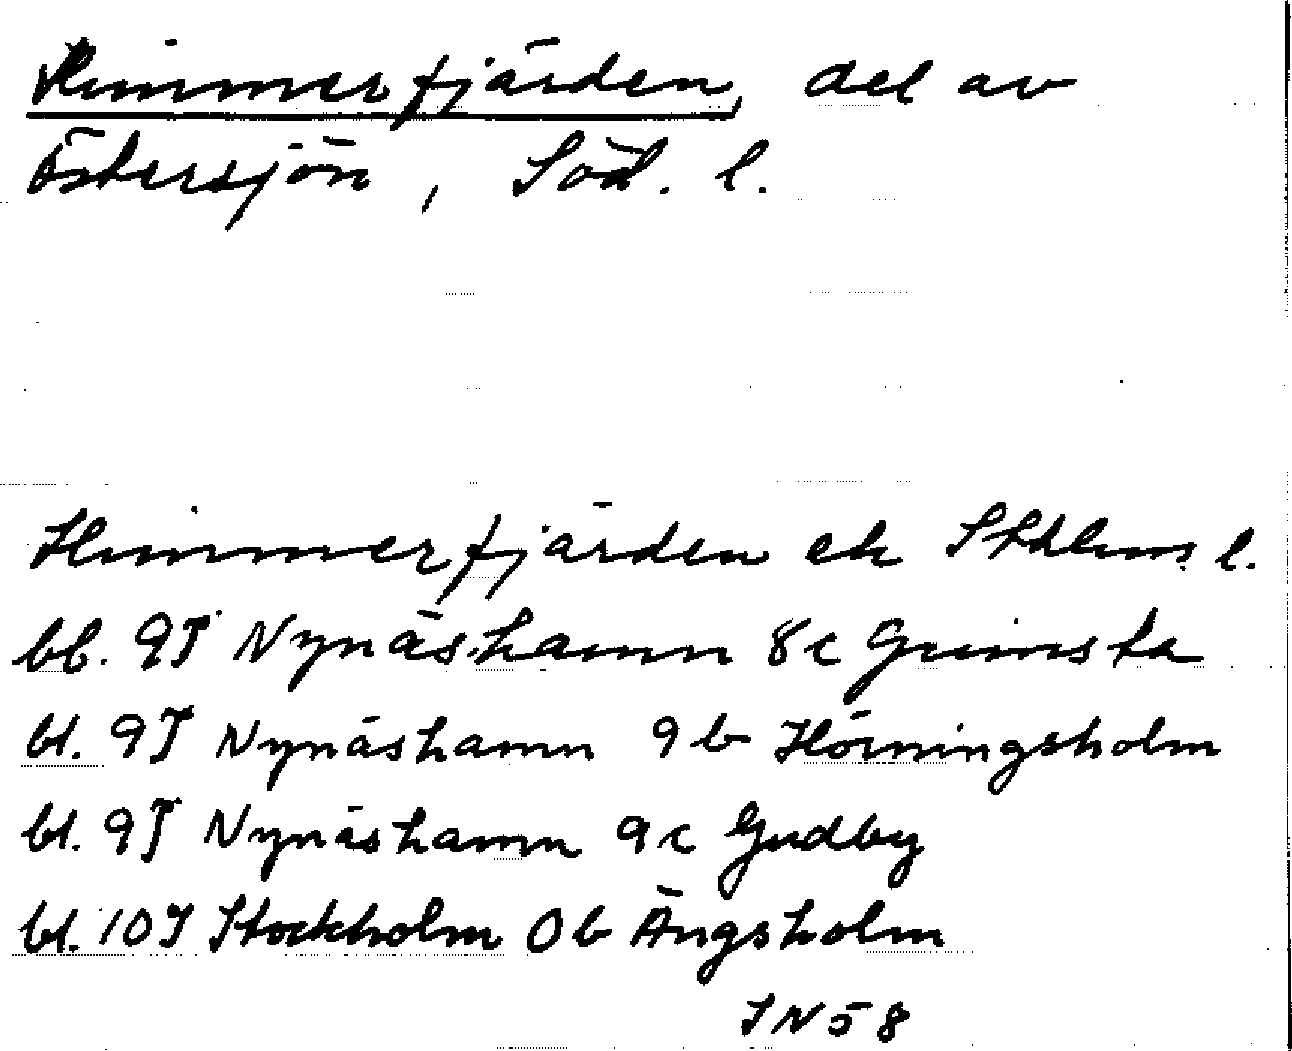 Himmerfjärden, del av
Östersjön, Söd. l.
Himmerfjärden ek Sthlms l.
bl. 9I Nynäshamn 8c Grimsta
bl. 9I Nynäshamn 9b Hörningsholm
bl. 9I Nynäshamn 9c Gudby
bl. 10I Stockholm 0b Ängsholm
IN58